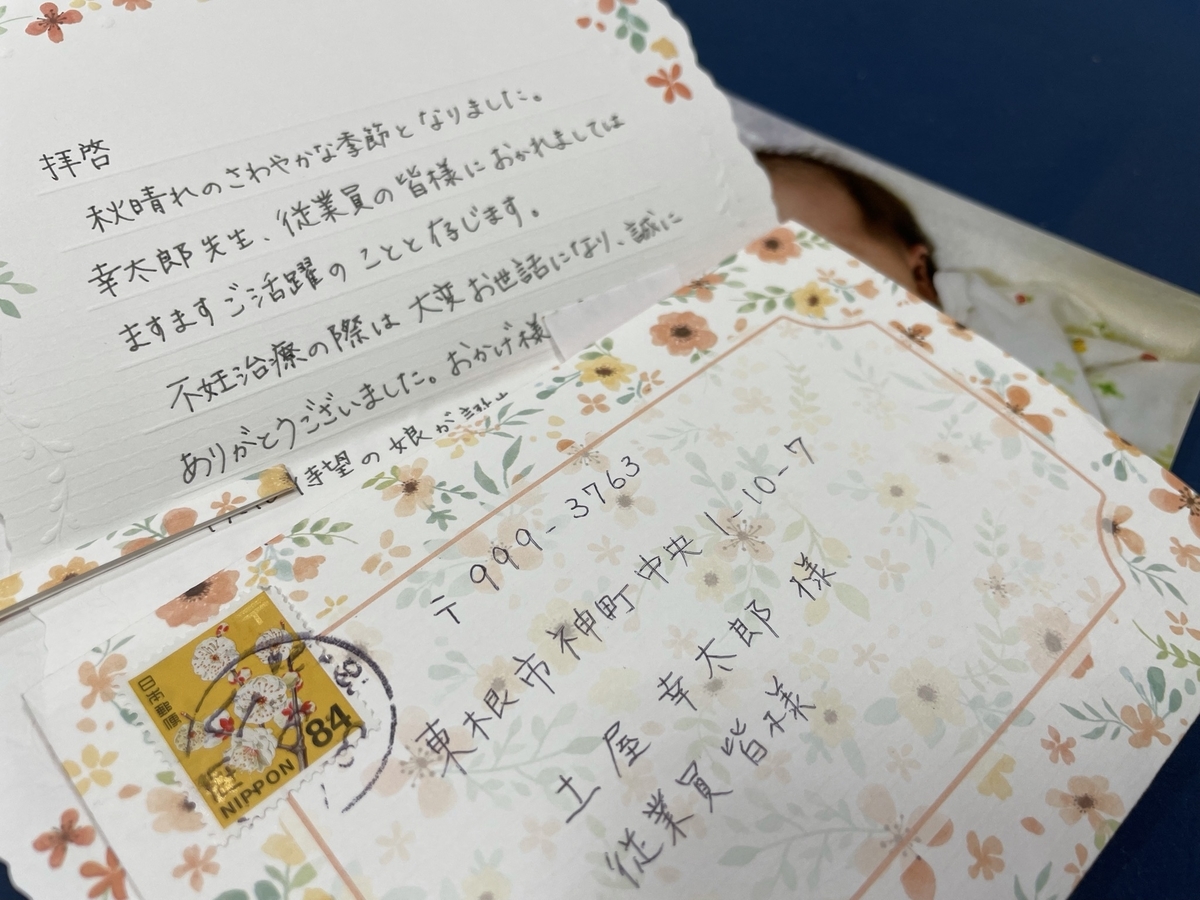 拝啓
秋晴れのさわやかな季節となりました。
幸太郎先生、従業員の皆様におかれましては
ますますご活躍のことと存じます。
不妊治療の際は大変お世話になり、誠に
ありがとうございました。おかげ様
待望の娘が
〒999-3763
東根市神町中央1-10-7
土屋 幸太郎 様
従業員皆様
日本郵便
84
NIPPON